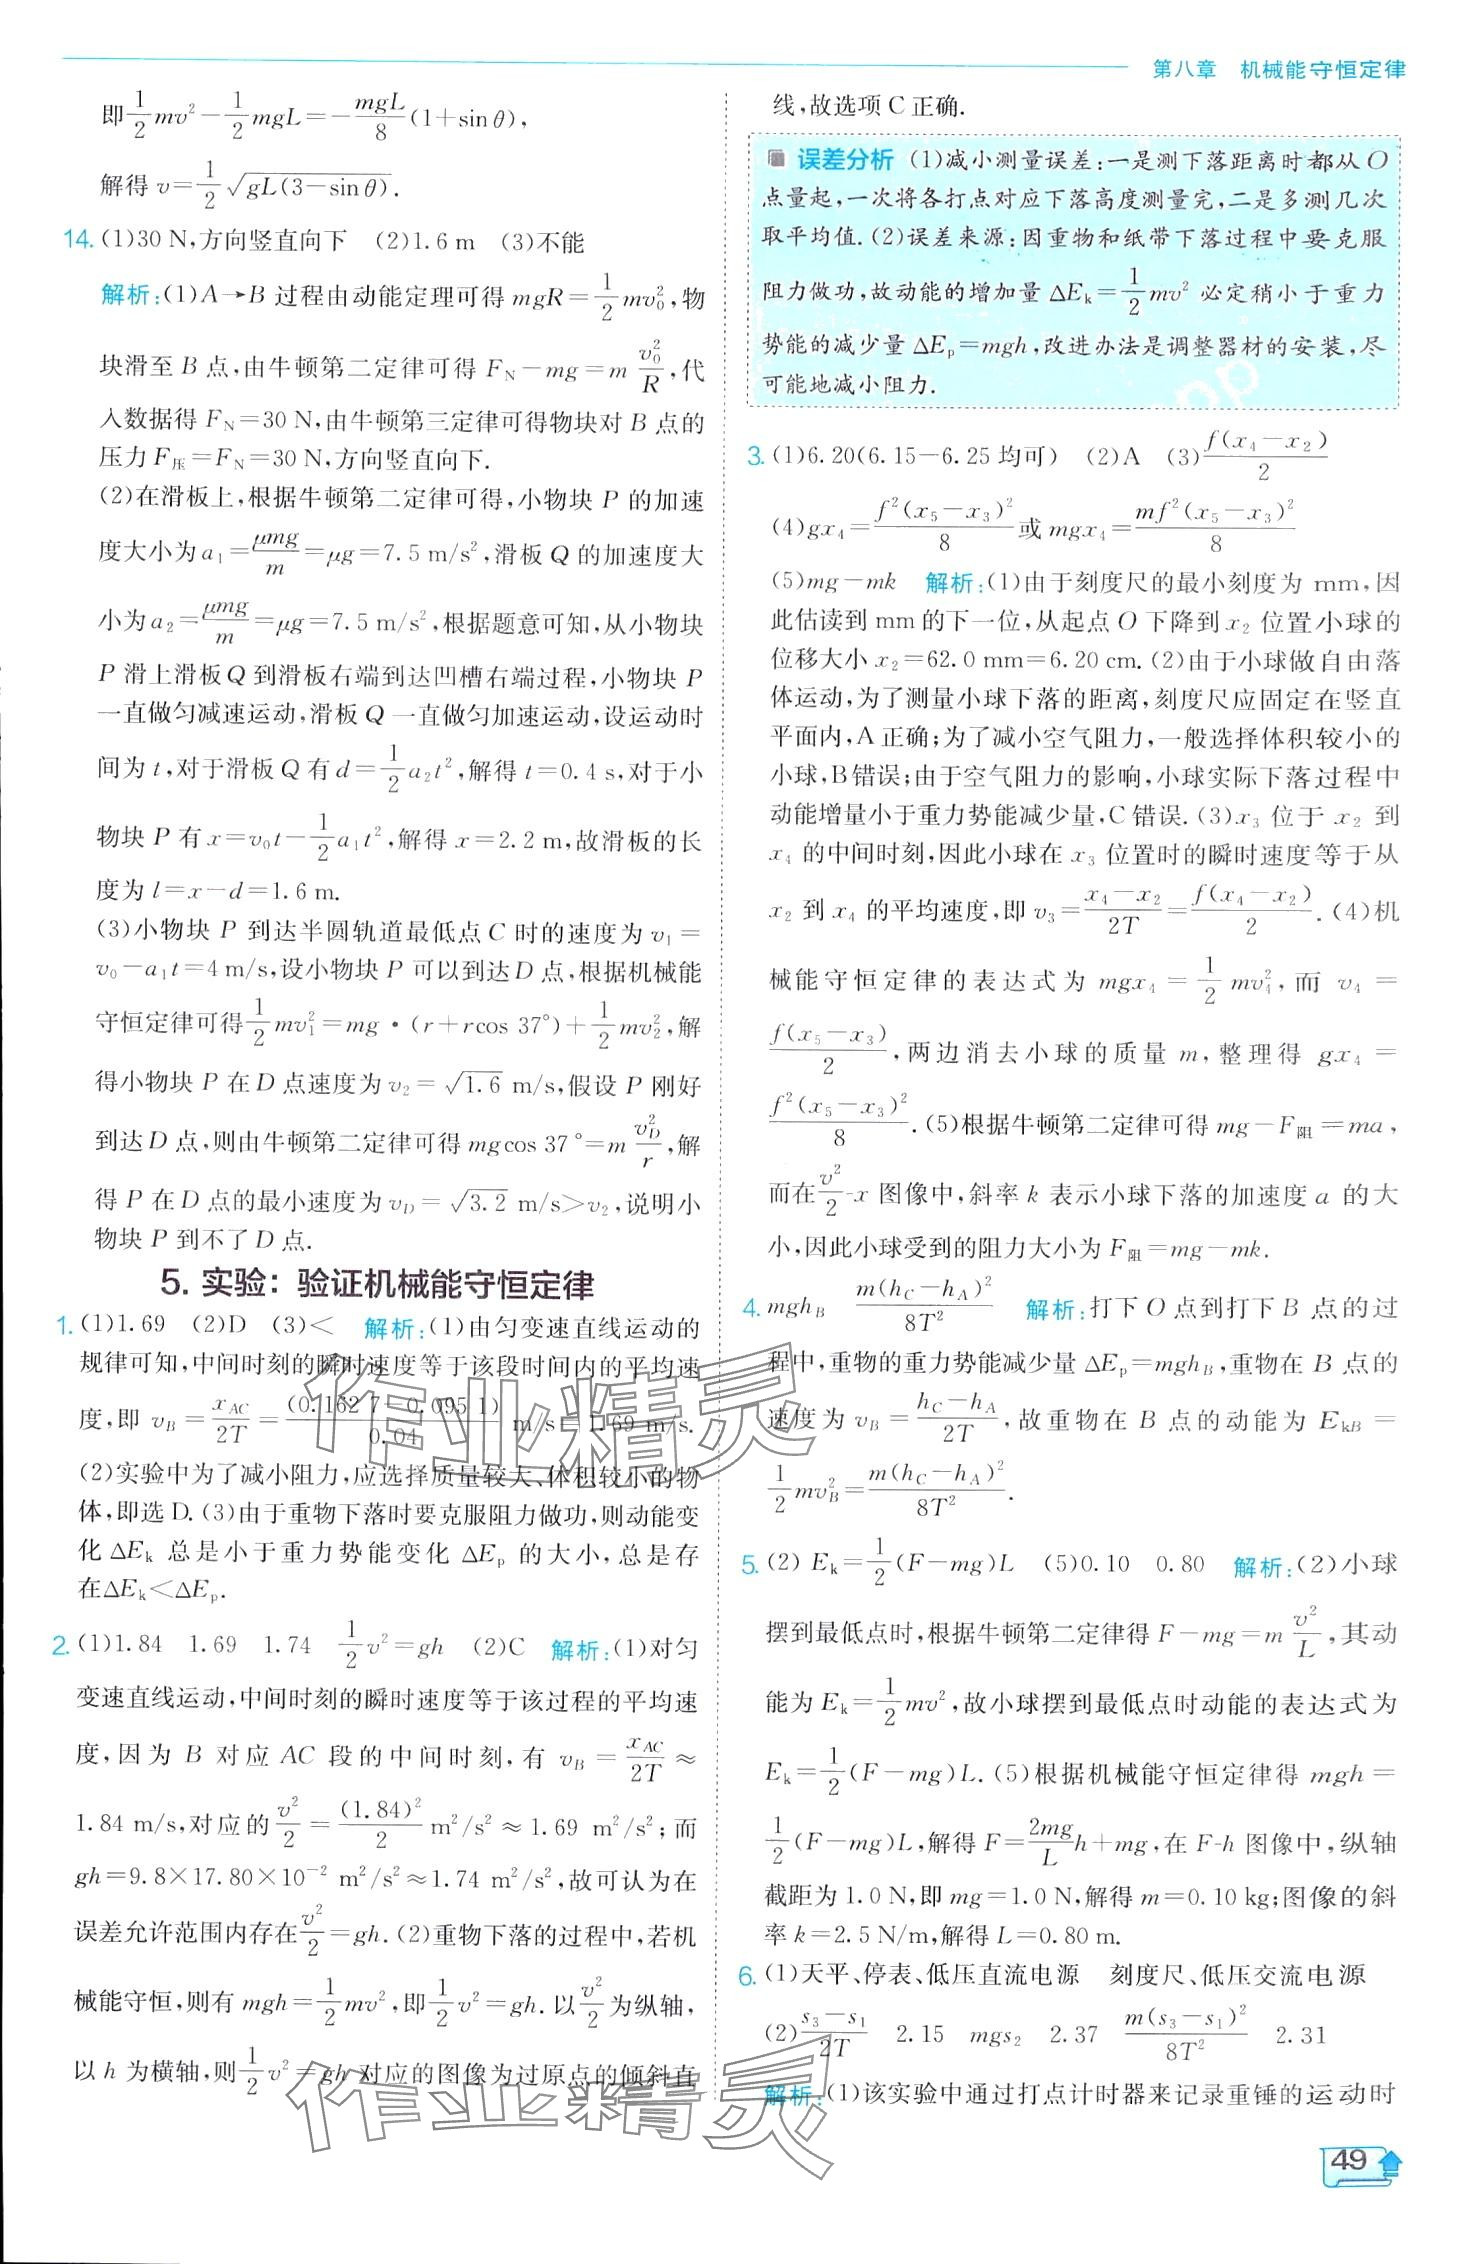 第八章 机械能守恒定律
即1/2mv²-1/2mgL=-mgL/8(1+sinθ),
解得 v=1/2√gL(3-sinθ).
14. (1)30 N,方向竖直向下 (2)1.6 m (3)不能
解析:(1)A→B 过程由动能定理可得 mgR=1/2mv₀²,物
块滑至 B 点,由牛顿第二定律可得 F_N-mg=m v₀²/R,代
入数据得 F_N=30 N,由牛顿第三定律可得物块对 B 点的
压力 F_压=F_N=30 N,方向竖直向下.
(2)在滑板上,根据牛顿第二定律可得,小物块 P 的加速
度大小为 a₁=μmg/m=μg=7.5 m/s²,滑板 Q 的加速度大
小为 a₂=μmg/m=μg=7.5 m/s²,根据题意可知,从小物块
P 滑上滑板 Q 到滑板右端到达凹槽右端过程,小物块 P
一直做匀减速运动,滑板 Q 一直做匀加速运动,设运动时
间为 t,对于滑板 Q 有 d=1/2a₂t²,解得 t=0.4 s,对于小
物块 P 有 x=v₀t-1/2a₁t²,解得 x=2.2 m,故滑板的长
度为 l=x-d=1.6 m.
(3)小物块 P 到达半圆轨道最低点 C 时的速度为 v₁=
v₀-a₁t=4 m/s,设小物块 P 可以到达 D 点,根据机械能
守恒定律可得1/2mv₁²=mg·(r+rcos 37°)+1/2mv₂²,解
得小物块 P 在 D 点速度为 v₂=√1.6 m/s,假设 P 刚好
到达 D 点,则由牛顿第二定律可得 mgcos 37°=m v_D²/r,解
得 P 在 D 点的最小速度为 v_D=√3.2 m/s>v₂,说明小
物块 P 到不了 D 点.
5. 实验：验证机械能守恒定律
1. (1)1.69 (2)D (3)< 解析:(1)由匀变速直线运动的
规律可知,中间时刻的瞬时速度等于该段时间内的平均速
度,即 v_B=x_AC/2T=(0.162 7-0.095 1)/0.04 m/s=1.69 m/s.
(2)实验中为了减小阻力,应选择质量较大、体积较小的物
体,即选 D. (3)由于重物下落时要克服阻力做功,则动能变
化 ΔE_k 总是小于重力势能变化 ΔE_p 的大小,总是存
在 ΔE_k<ΔE_p.
2. (1)1.84 1.69 1.74 1/2v²=gh (2)C 解析:(1)对匀
变速直线运动,中间时刻的瞬时速度等于该过程的平均速
度,因为 B 对应 AC 段的中间时刻,有 v_B=x_AC/2T≈
1.84 m/s,对应的v²/2=(1.84)²/2 m²/s²≈1.69 m²/s²;而
gh=9.8×17.80×10⁻² m²/s²≈1.74 m²/s²,故可认为在
误差允许范围内存在v²/2=gh. (2)重物下落的过程中,若机
械能守恒,则有 mgh=1/2mv²,即1/2v²=gh. 以v²/2为纵轴,
以 h 为横轴,则1/2v²=gh 对应的图像为过原点的倾斜直
线,故选项 C 正确.
误差分析 (1)减小测量误差:一是测下落距离时都从 O
点量起,一次将各打点对应下落高度测量完,二是多测几次
取平均值.(2)误差来源:因重物和纸带下落过程中要克服
阻力做功,故动能的增加量 ΔE_k=1/2mv² 必定稍小于重力
势能的减少量 ΔE_p=mgh,改进办法是调整器材的安装,尽
可能地减小阻力.
3. (1)6.20(6.15-6.25 均可) (2)A (3)f(x₄-x₂)/2
(4)gx₄=f²(x₅-x₃)²/8或 mgx₄=mf²(x₅-x₃)²/8
(5)mg-mk 解析:(1)由于刻度尺的最小刻度为 mm,因
此估读到 mm 的下一位,从起点 O 下降到 x₂ 位置小球的
位移大小 x₂=62.0 mm=6.20 cm. (2)由于小球做自由落
体运动,为了测量小球下落的距离,刻度尺应固定在竖直
平面内,A 正确;为了减小空气阻力,一般选择体积较小的
小球,B 错误;由于空气阻力的影响,小球实际下落过程中
动能增量小于重力势能减少量,C 错误. (3)x₃ 位于 x₂ 到
x₄ 的中间时刻,因此小球在 x₃ 位置时的瞬时速度等于从
x₂ 到 x₄ 的平均速度,即 v₃=x₄-x₂/2T=f(x₄-x₂)/2. (4)机
械能守恒定律的表达式为 mgx₄=1/2mv₄²,而 v₄=
f(x₅-x₃)/2,两边消去小球的质量 m,整理得 gx₄=
f²(x₅-x₃)²/8. (5)根据牛顿第二定律可得 mg-F_阻=ma,
而在v²/2-x 图像中,斜率 k 表示小球下落的加速度 a 的大
小,因此小球受到的阻力大小为 F_阻=mg-mk.
4. mgh_B m(h_C-h_A)²/8T² 解析:打下 O 点到打下 B 点的过
程中,重物的重力势能减少量 ΔE_p=mgh_B,重物在 B 点的
速度为 v_B=h_C-h_A/2T,故重物在 B 点的动能为 E_kB=
1/2mv_B²=m(h_C-h_A)²/8T².
5. (2) E_k=1/2(F-mg)L (5)0.10 0.80 解析:(2)小球
摆到最低点时,根据牛顿第二定律得 F-mg=m v²/L,其动
能为 E_k=1/2mv²,故小球摆到最低点时动能的表达式为
E_k=1/2(F-mg)L. (5)根据机械能守恒定律得 mgh=
1/2(F-mg)L,解得 F=2mg/L h+mg,在 F-h 图像中,纵轴
截距为 1.0 N,即 mg=1.0 N,解得 m=0.10 kg;图像的斜
率 k=2.5 N/m,解得 L=0.80 m.
6. (1)天平、停表、低压直流电源 刻度尺、低压交流电源
(2)s₃-s₁/2T 2.15 mgs₂ 2.37 m(s₃-s₁)²/8T² 2.31
解析:(1)该实验中通过打点计时器来记录重锤的运动时
49
作业精灵
作业精灵